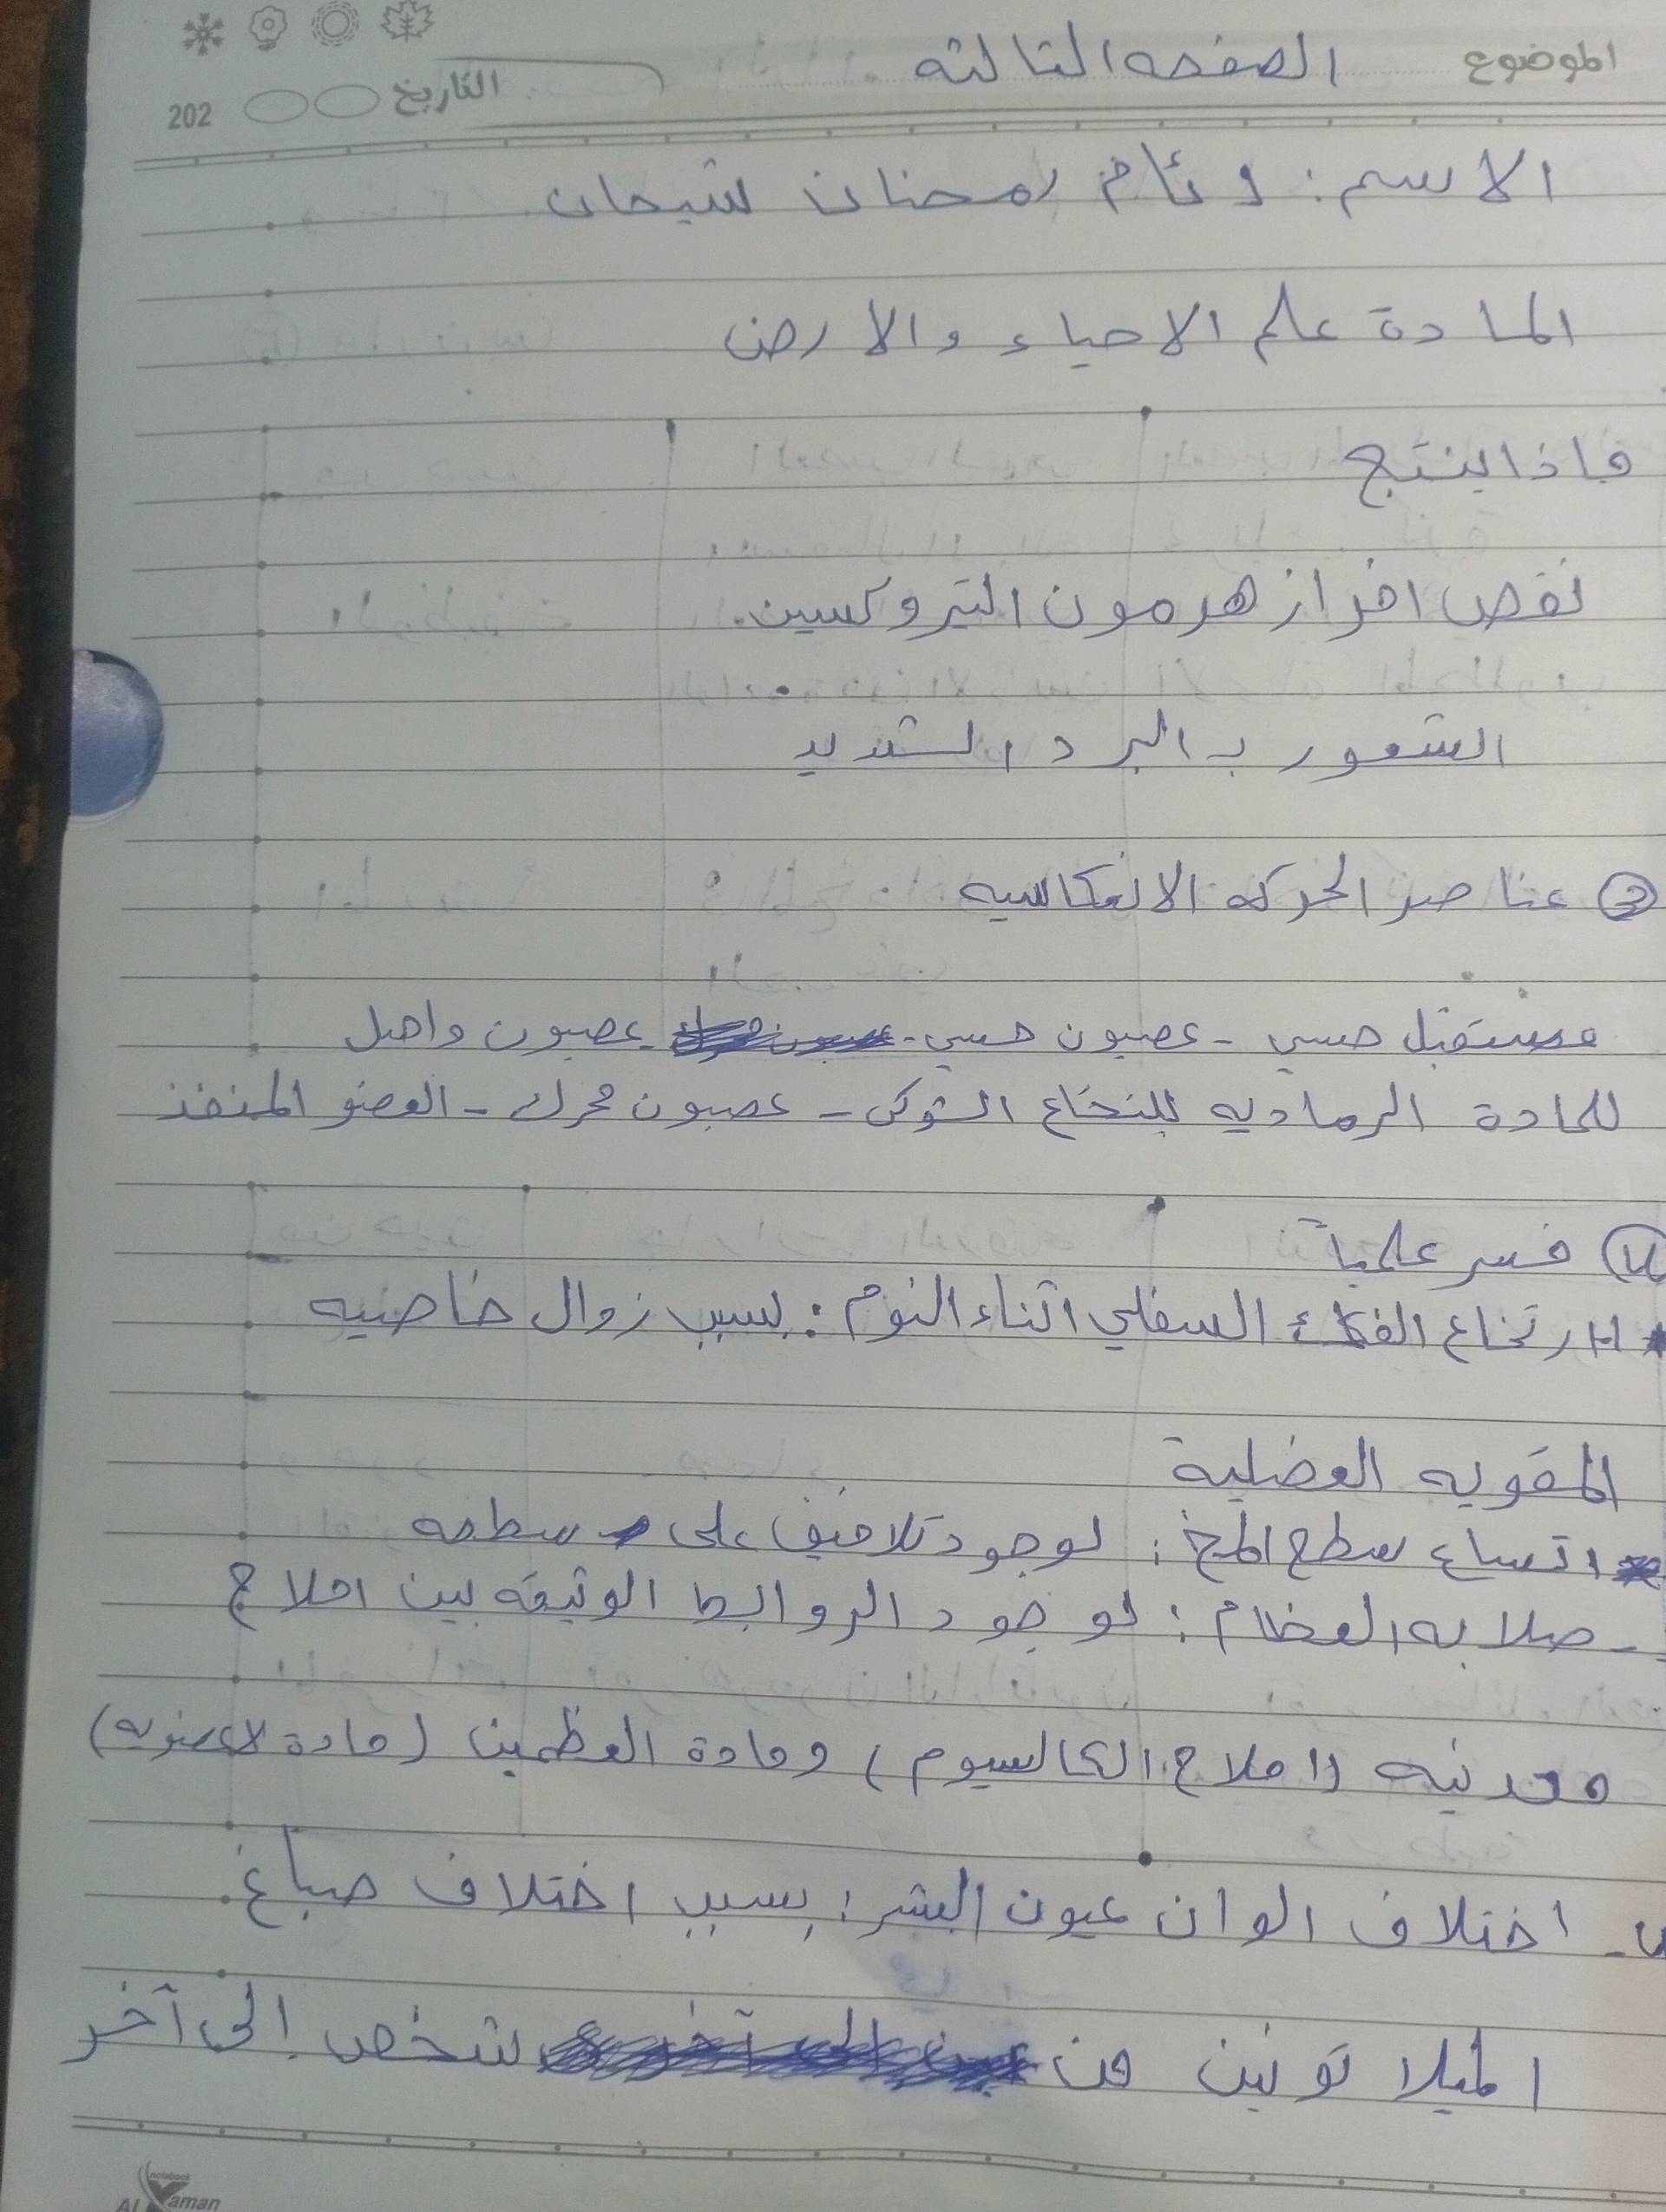 الموضوع الصفحه الثالثه
التاريخ 202
الاسم: وئام رمضان شيحان
المادة علم الاحياء والارض
ماذا ينتج
نقص افراز هرمون التيروكسين.
الشعور بالبرد الشديد
③ عناصر الحركه الانعكاسيه
مستقبل حسي - عصبون حسي - عصبون واصل
للمادة الرماديه للنخاع الشوكي - عصبون محرك - العضو المنفذ
فسر علمياً
ارتخاع الفك السفلي اثناء النوم: بسبب زوال خاصيه
المقويه العضلية
اتساع سطح المخ: لوجود تلافيف على سطحه
- صلابه العظام: لوجود الروابط الوثيقه بين املاح
معدنيه (املاح الكالسيوم) ومادة العظمين (مادة لاعضويه)
- اختلاف الوان عيون البشر: بسبب اختلاف صباغ
الميلاتونين من شخص إلى آخر
notebook
Al Yaman